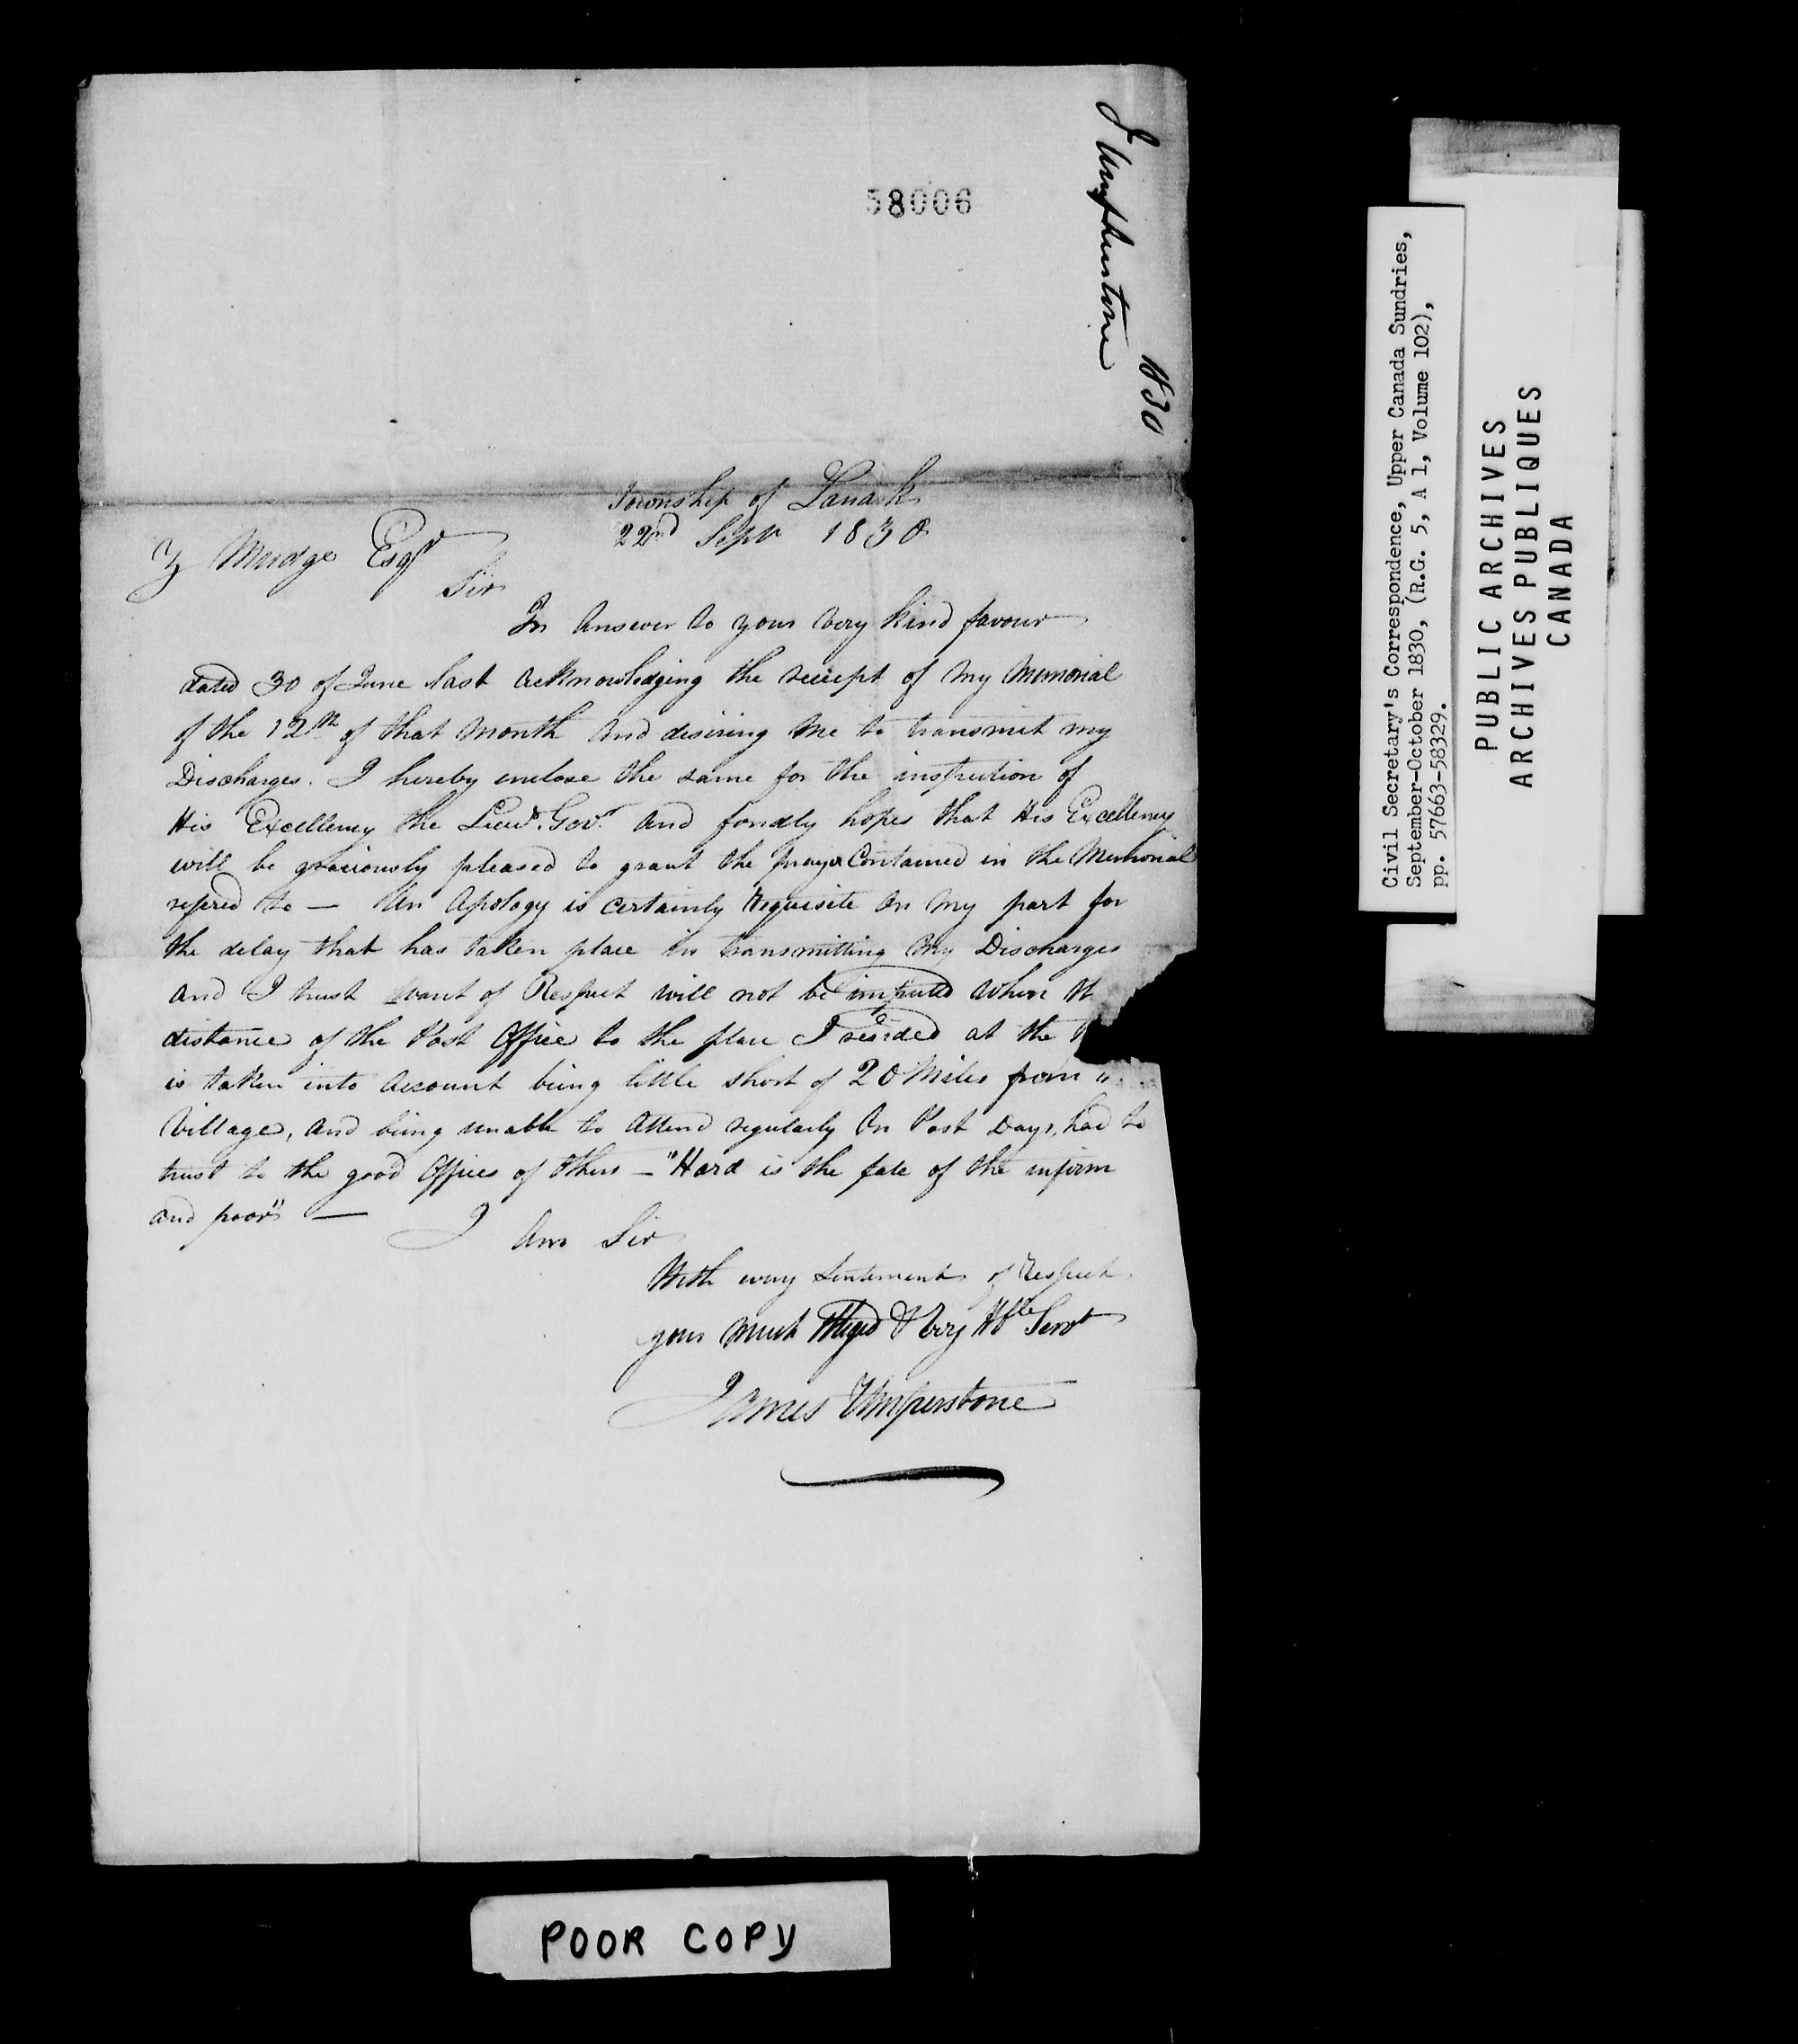 J Umpherstone
1830
58006
Township of Lanark
22nd Sept 1830
Z Mudge Esqr
Sir
In Answer to your very kind favour
dated 30 of June last Acknowledging the receipt of my Memorial
of the 12th of that Month and desiring me to transmit my
Discharges. I hereby inclose the same for the inspection of
His Excellency the Lieut. Govr. and fondly hopes that His Excellency
will be graciously pleased to grant the prayer Contained in the Memorial
refered to — An Apology is certainly requisite on my part for
the delay that has taken place in transmitting my Discharges
and I trust want of Respect will not be imputed when th
distance of the Post Office to the place I resided at the
is taken into account being little short of 20 Miles from
Village, and being unable to Attend regularly on Post Days, had to
trust to the good Offices of others — "Hard is the fate of the infirm
and poor" —
I Am Sir
With every Sentiment of Respect
your much Obliged & Very Hble Servt
James Umperstone
POOR COPY
Civil Secretary's Correspondence, Upper Canada Sundries,
September-October 1830, (R.G. 5, A 1, Volume 102),
pp. 57663-58329.
PUBLIC ARCHIVES
ARCHIVES PUBLIQUES
CANADA